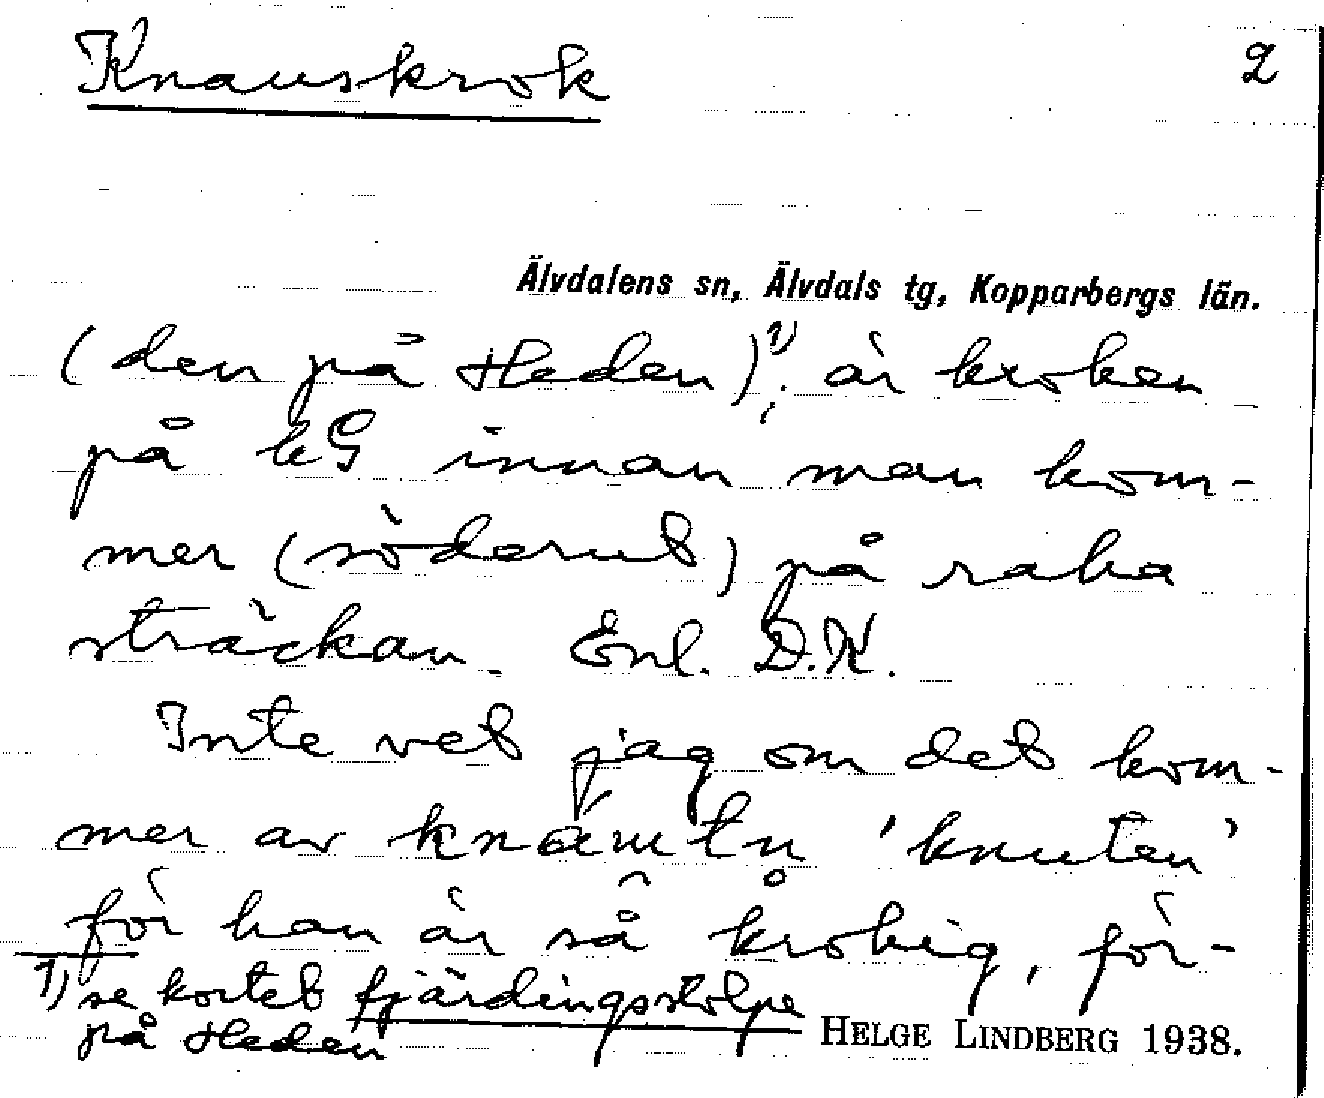 Knauskrok 2
Älvdalens sn, Älvdals tg, Kopparbergs län.
(den på Heden)¹⁾; är kroken
på innan man kom-
mer (söderut) på raka
sträckan. Enl. D.K.
Inte vet jag om det kom-
mer av 'knuten'
för han är så krokig, för-
1) se kortet fjärdingsstolpe
på Heden
HELGE LINDBERG 1938.